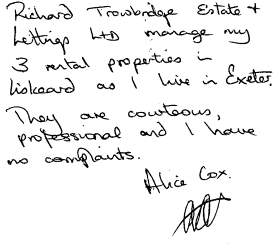 Richard Trowbridge Estate +
Lettings LTD manage my
3 rental properties in
Liskeard as I live in Exeter.
They are courteous,
professional and I have
no complaints.
Alice Cox.